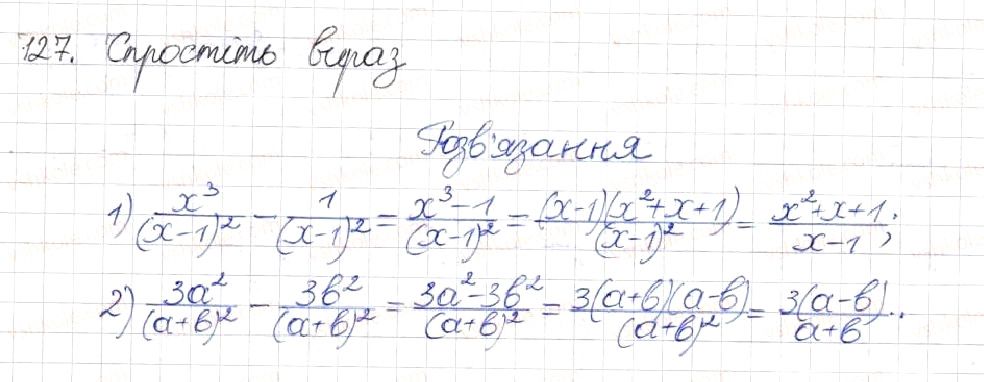 127. Спростіть вираз
Розв'язання
1) \frac{x^3}{(x-1)^2} - \frac{1}{(x-1)^2} = \frac{x^3-1}{(x-1)^2} = \frac{(x-1)(x^2+x+1)}{(x-1)^2} = \frac{x^2+x+1}{x-1};
2) \frac{3a^2}{(a+b)^2} - \frac{3b^2}{(a+b)^2} = \frac{3a^2-3b^2}{(a+b)^2} = \frac{3(a+b)(a-b)}{(a+b)^2} = \frac{3(a-b)}{a+b}..